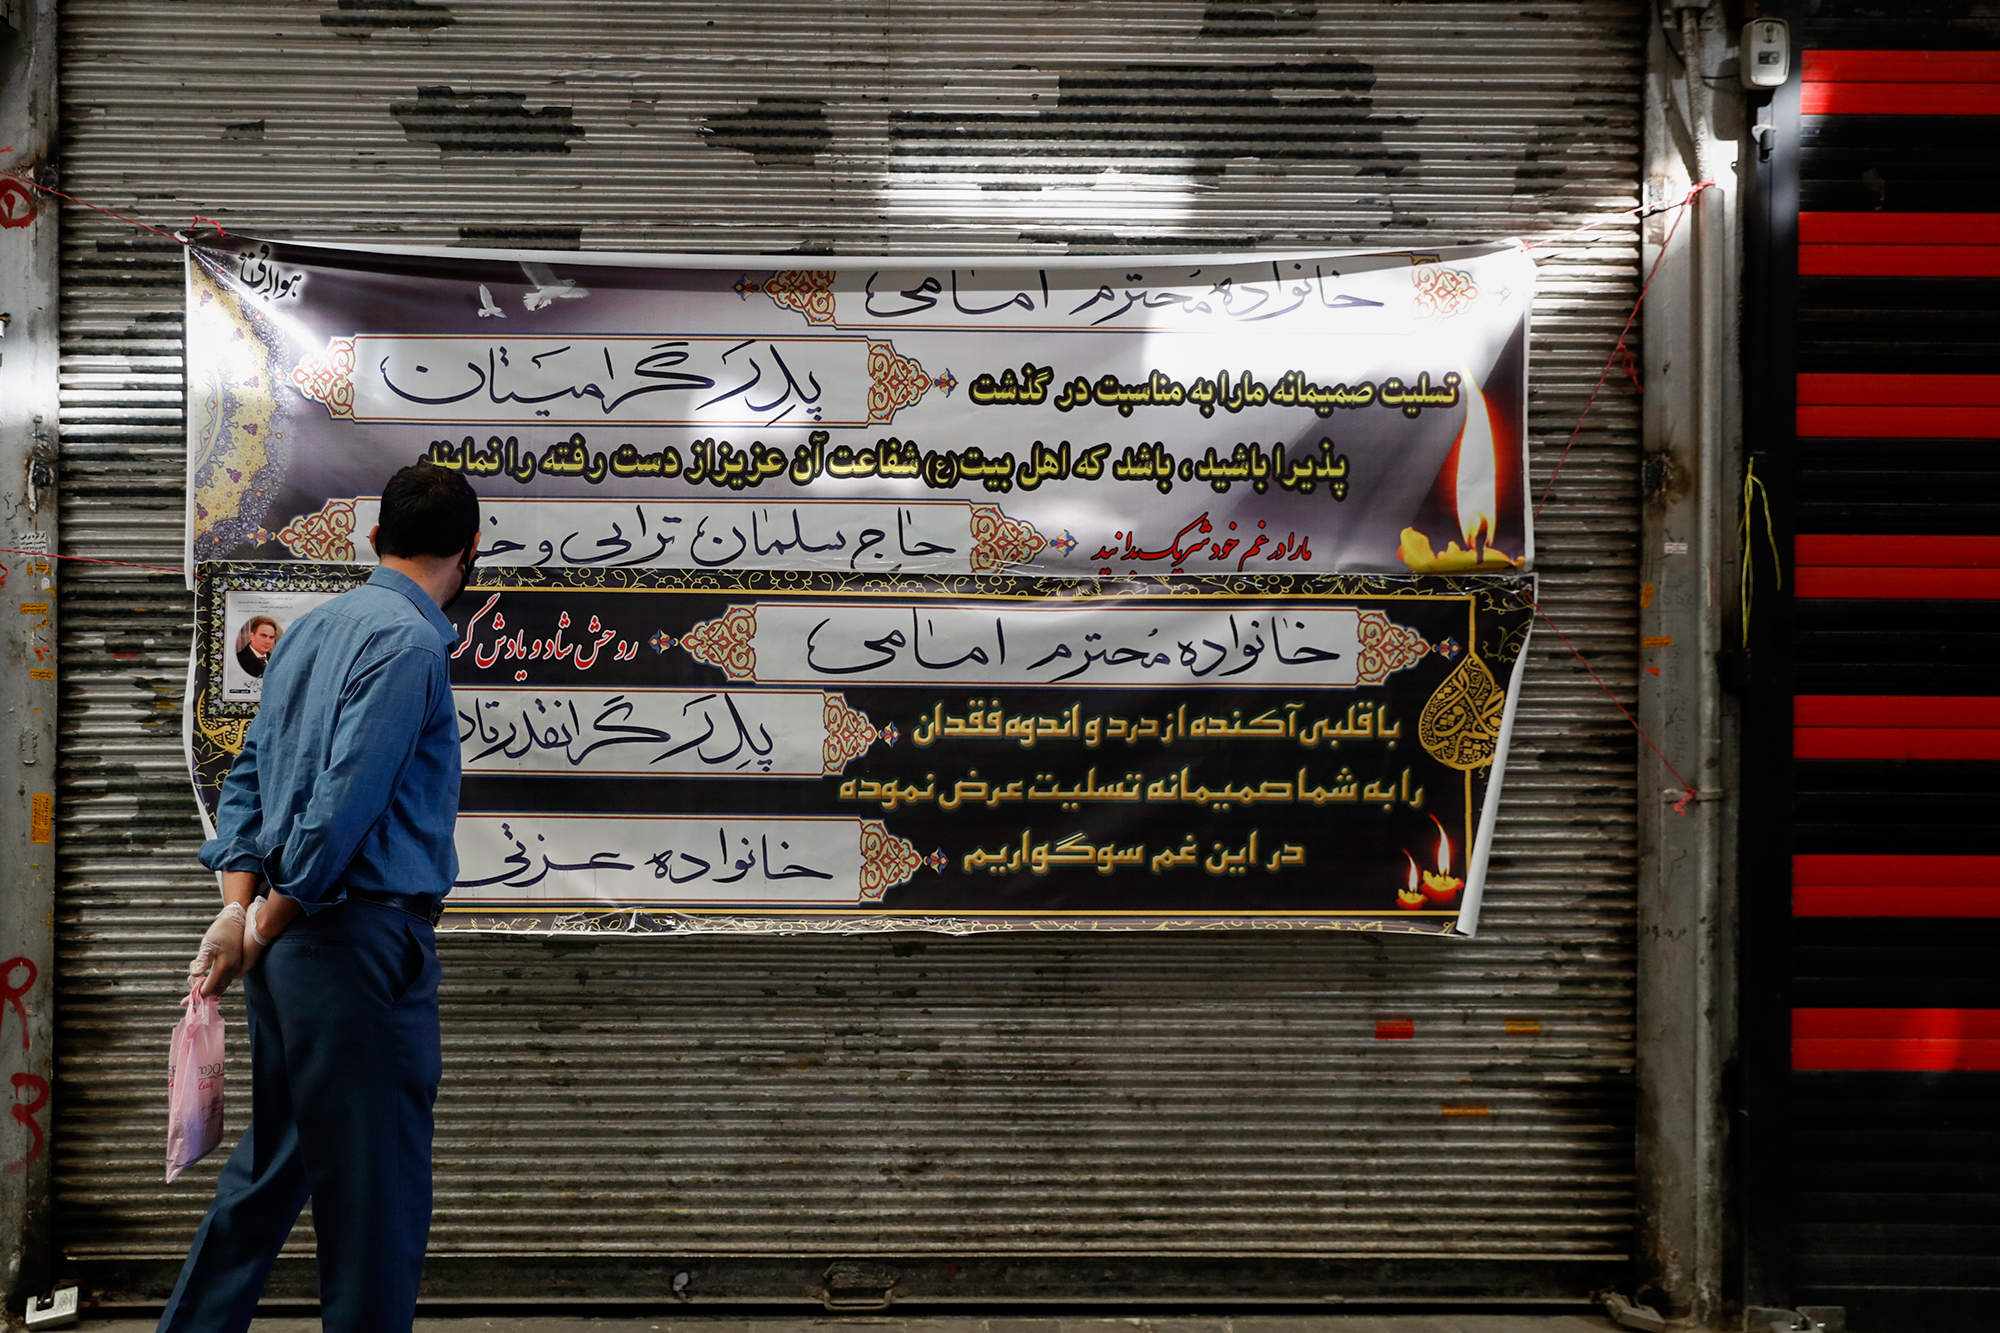 هوالباقی
خانواده محترم امامی
تسلیت صمیمانه مارا به مناسبت در گذشت پدر گرامیتان
پذیرا باشید ، باشد که اهل بیت(ع) شفاعت آن عزیز از دست رفته را نمایند
مارا در غم خود شریک بدانید حاج سلمان ترابی و
خانواده محترم امامی روحش شاد و یادش
با قلبی آکنده از درد و اندوه فقدان پدر گرانقدرتان
را به شما صمیمانه تسلیت عرض نموده
در این غم سوگواریم خانواده عزتی
R
3